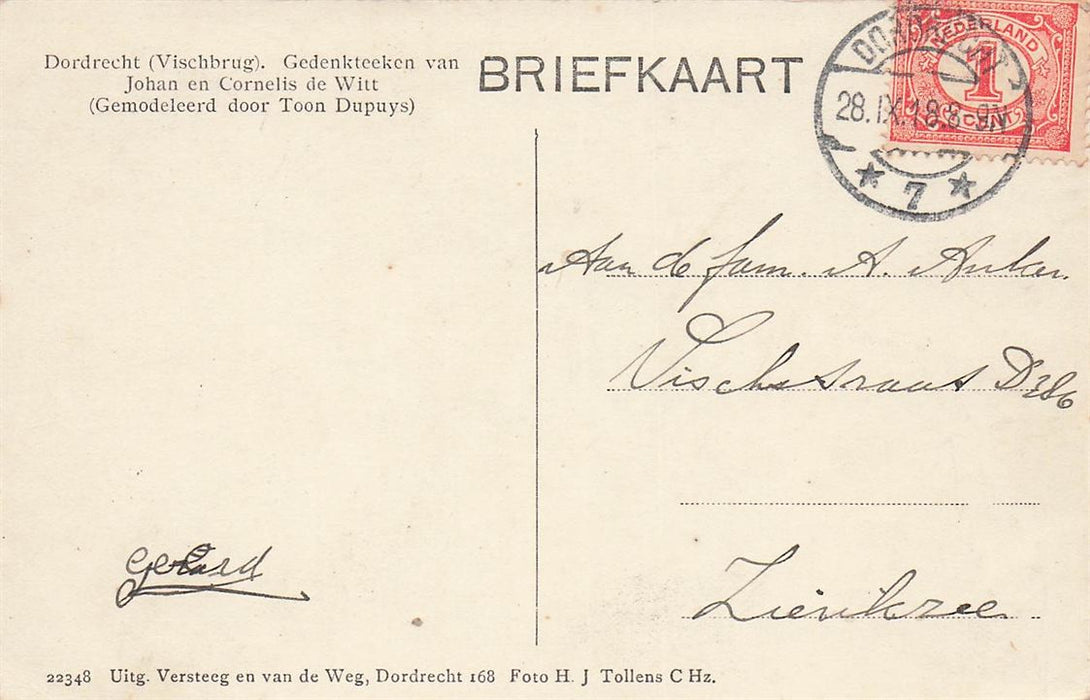 Dordrecht (Vischbrug). Gedenkteeken van
Johan en Cornelis de Witt
(Gemodeleerd door Toon Dupuys)
BRIEFKAART
DORDRECHT
28.IX.18.8-9N
7
NEDERLAND
1
CENT
Aan de fam. A. Anker
Vischstraat D286
Zierikzee
Gerard
22348 Uitg. Versteeg en van de Weg, Dordrecht 168 Foto H. J Tollens C Hz.